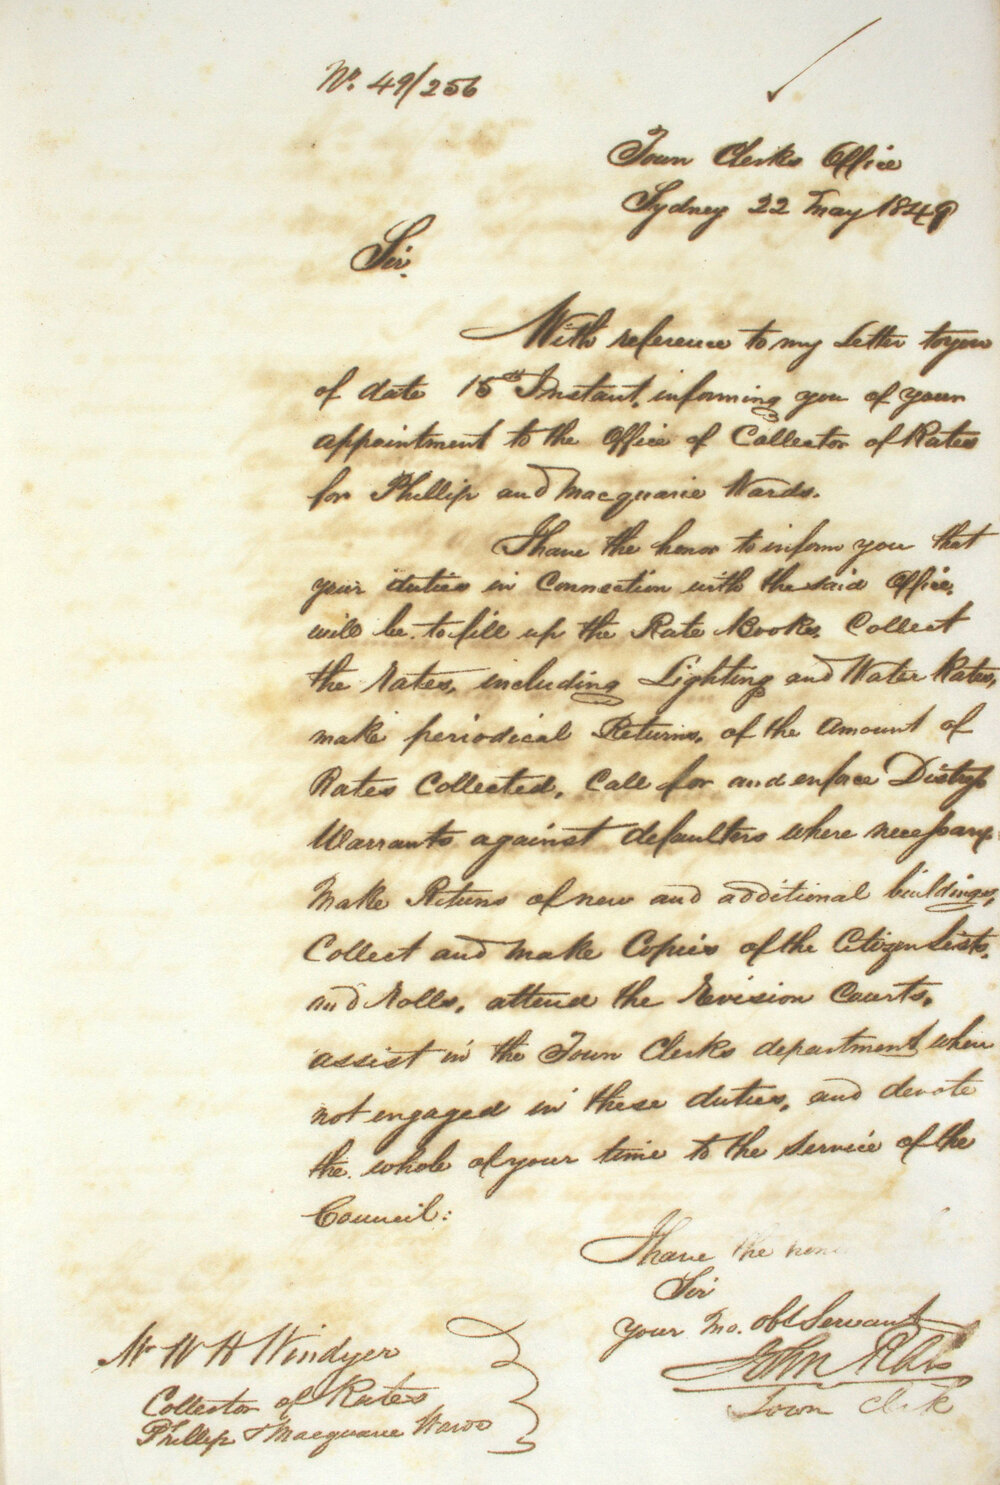 No. 49/256
Town Clerks Office
Sydney 22 May 1849
Sir.
With reference to my Letter to you
of date 15th Instant, informing you of your
appointment to the Office of Collector of Rates
for Phillip and Macquarie Wards.
I have the honor to inform you that
your duties in Connection with the said Office,
will be to fill up the Rate Books, Collect
the Rates, including Lighting and Water Rates,
make periodical Returns, of the Amount of
Rates Collected, Call for and enforce Distress
Warrants against defaulters where necessary.
Make Returns of new and additional buildings,
Collect and make Copies of the Citizen Lists,
and Rolls, attend the Revision Courts,
assist in the Town Clerks department, when
not engaged in these duties, and devote
the whole of your time to the Service of the
Council:
I have the hono
Sir
your Mo. obt Servant
John
Town Clerk
Mr W H Windyer
Collector of Rates
Phillip & Macquarie Wards